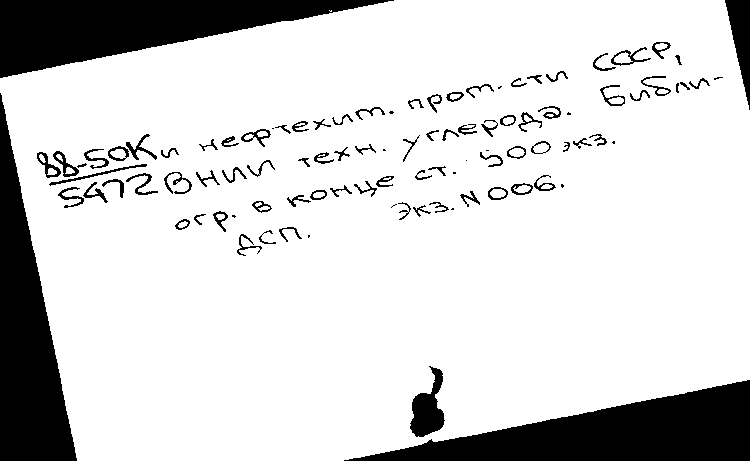 88-50К и нефтехим. пром-сти СССР,
5472 ВНИИ техн. углерода. Библи-
огр. в конце ст. 500 экз.
ДСП. Экз. N 006.